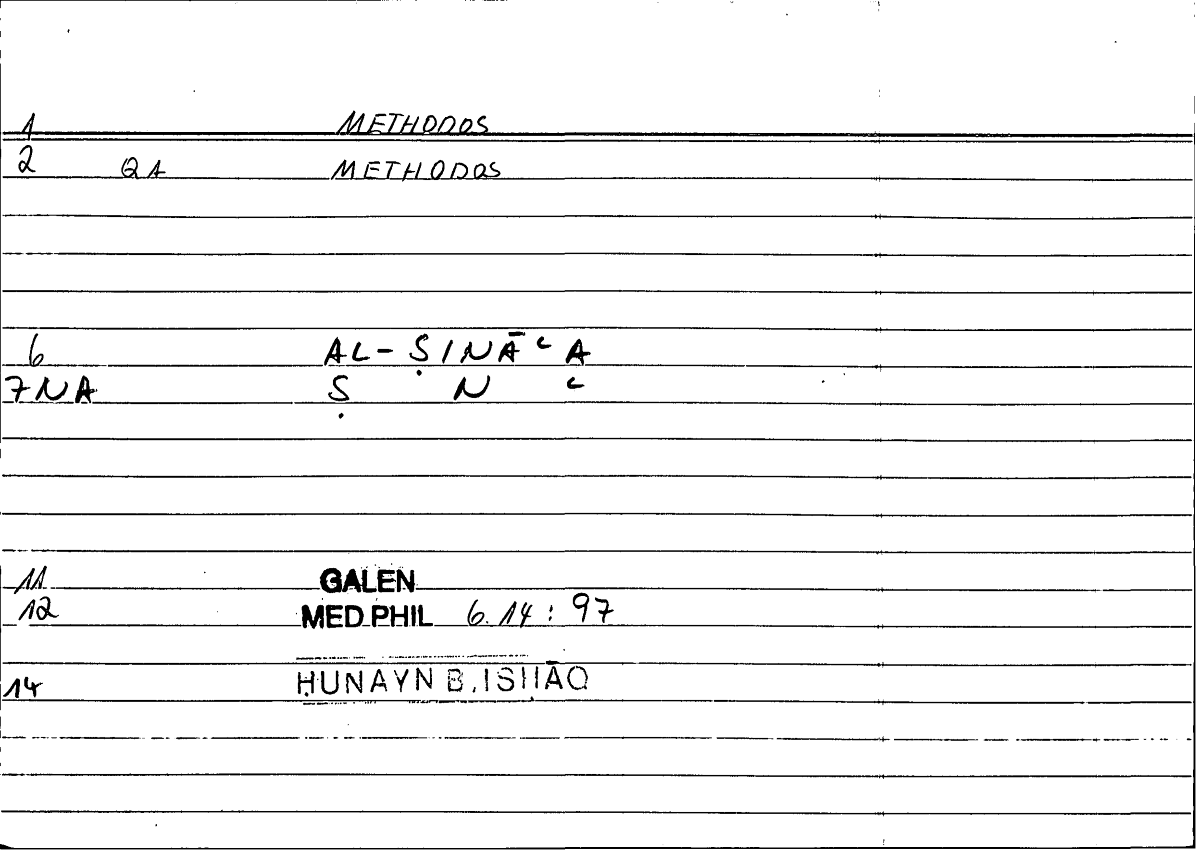 1 METHODOS
2 QA METHODOS
6 AL-ṢINĀʿA
7NA Ṣ N ʿ
11 GALEN
12 MED PHIL 6.14 : 97
14 ḤUNAYN B. ISḤĀQ